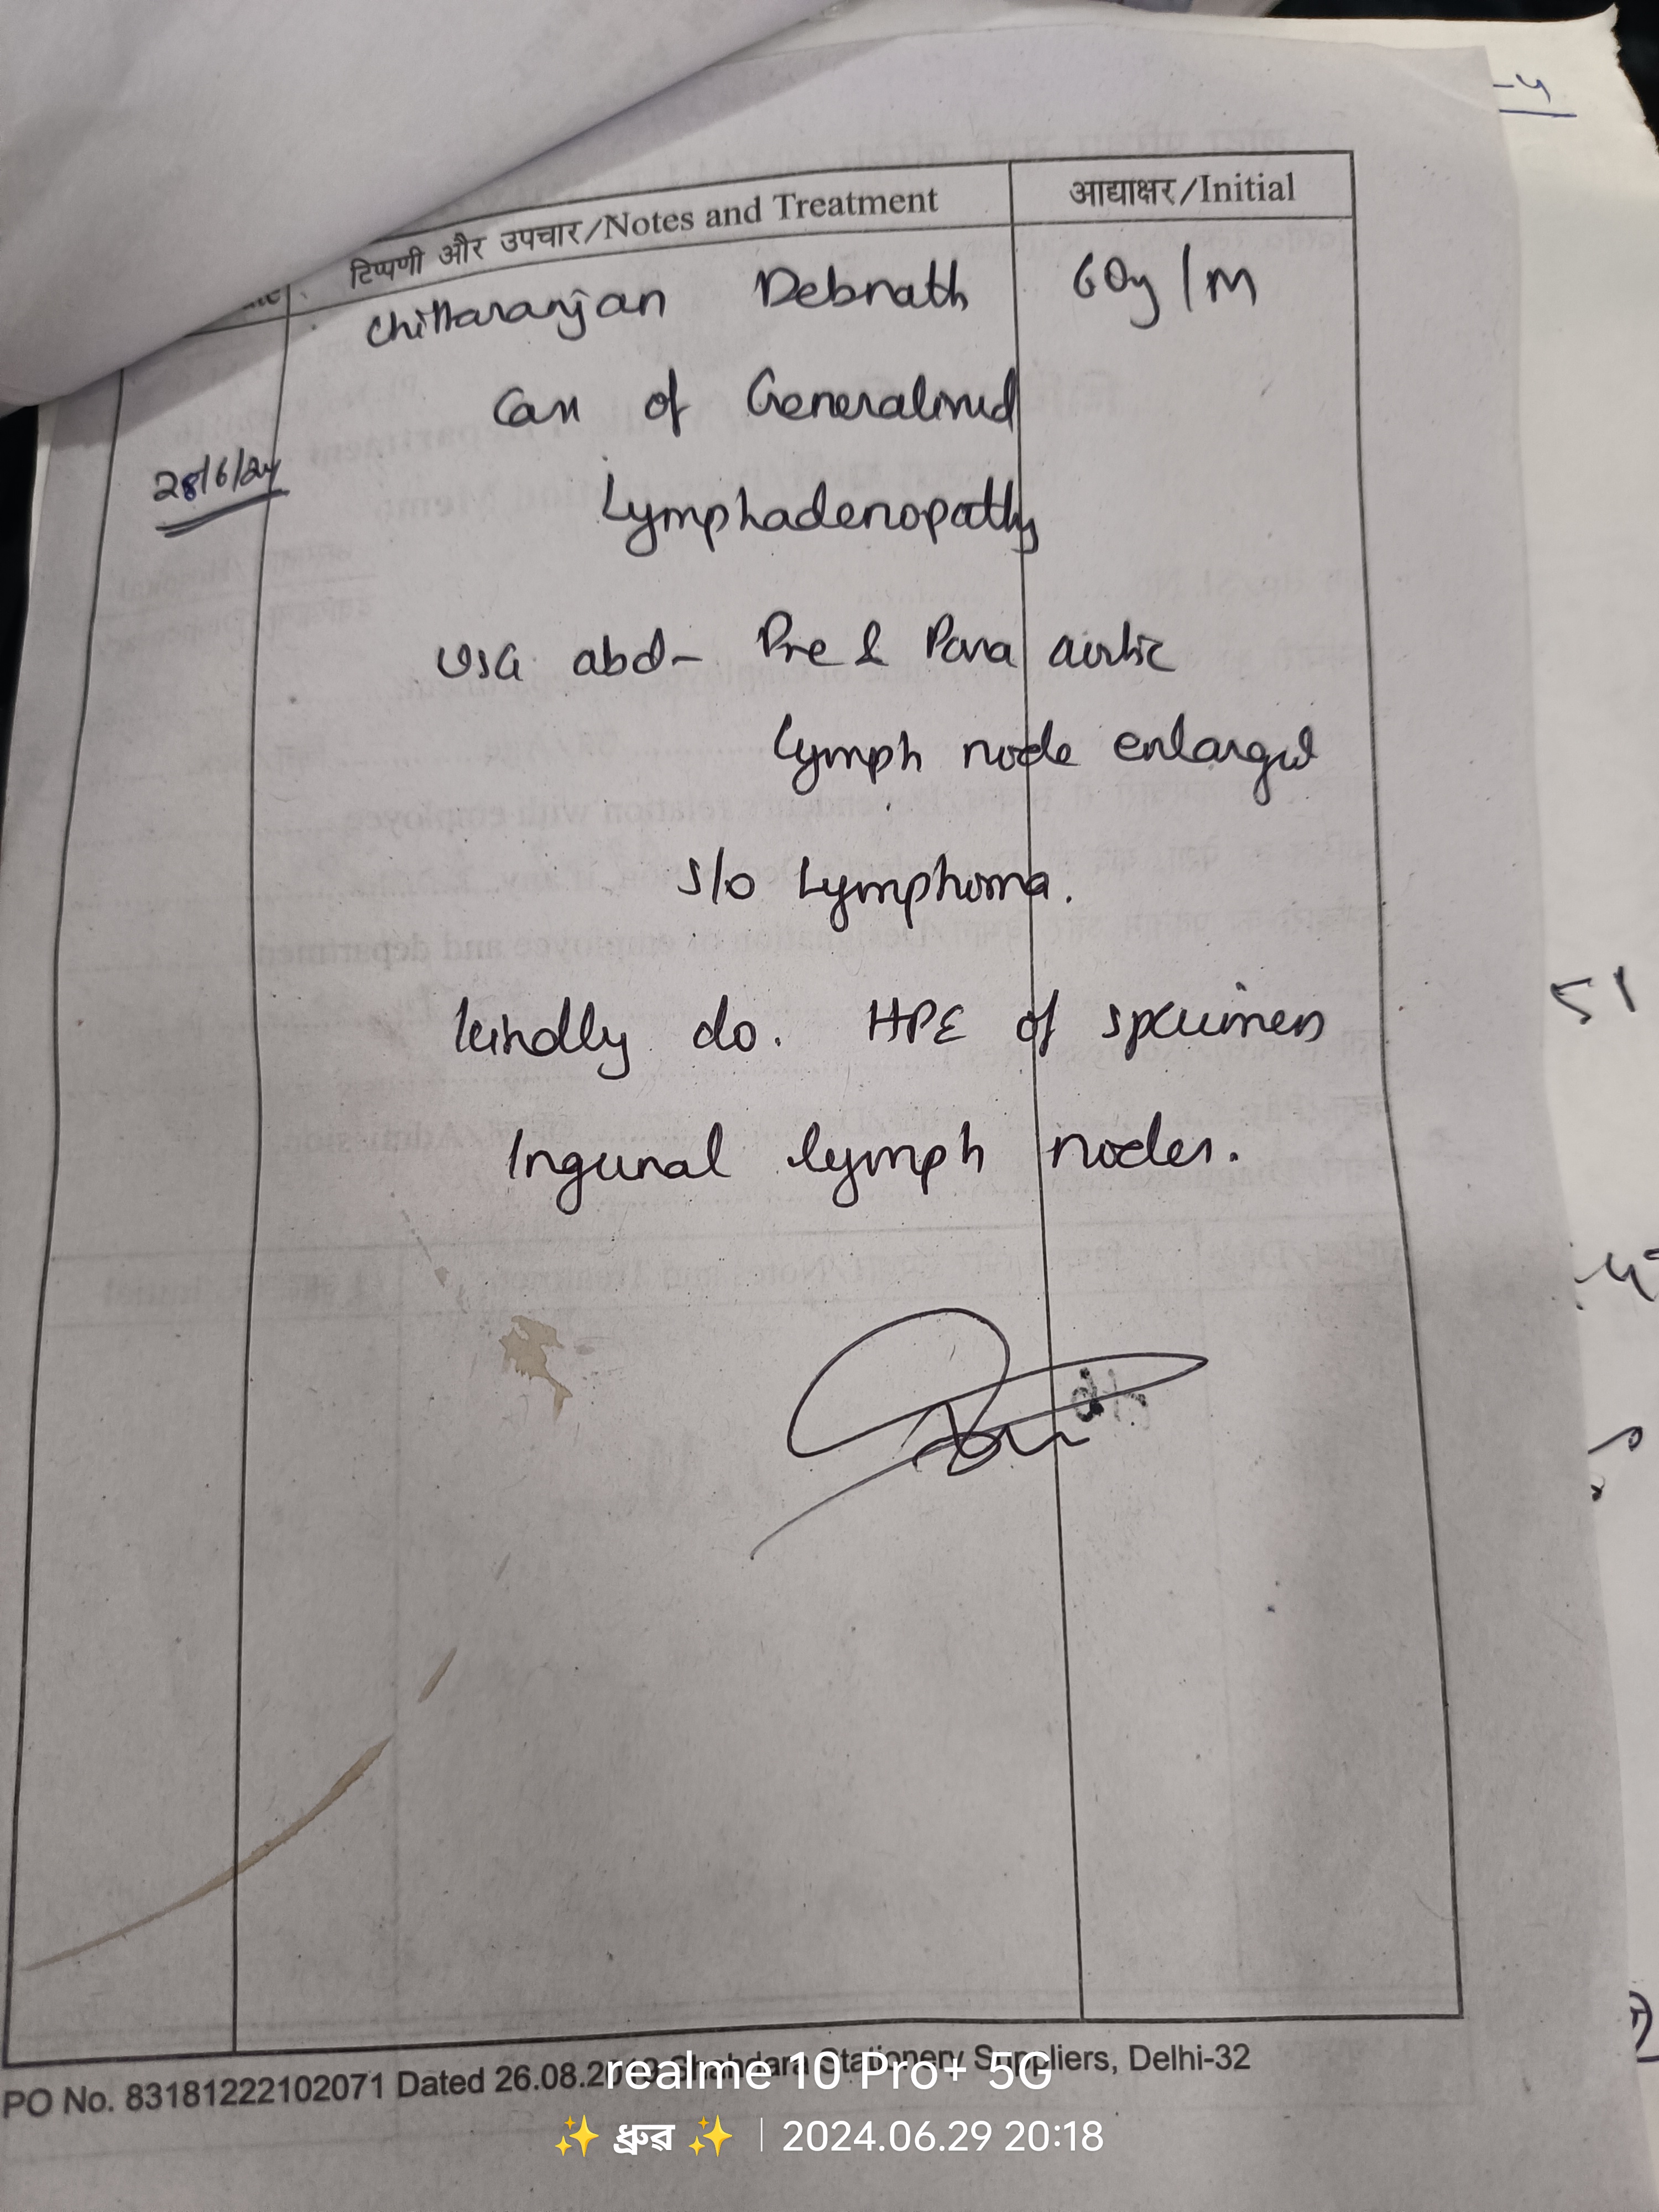 टिप्पणी और उपचार/Notes and Treatment आद्याक्षर/Initial
Chittaranjan Debnath 60y/M
Case of Generalised
28/6/24
Lymphadenopathy
USG abd- Pre & Para aortic
Lymph node enlarged
S/o Lymphoma.
kindly do. HPE of specimen
Inguinal lymph nodes.
PO No. 83181222102071 Dated 26.08.2019 Shahdara Stationery Suppliers, Delhi-32
realme 10 Pro+ 5G
✨ ধ্রুৱ ✨ | 2024.06.29 20:18